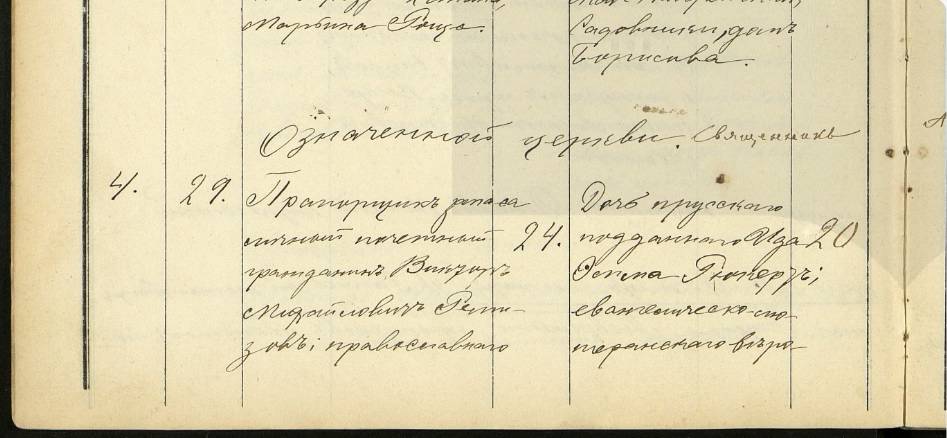 Марьина Роща.
Садовники, домъ
Борисова.
Означенной церкви. Священникъ
4. 29. Прапорщикъ запаса
личный почетный
гражданинъ Викторъ
Михайловичъ Реми-
зовъ; православнаго
24.
Дочь прусскаго
подданнаго Ида
Эмма
евангелическо-лю-
теранскаго вѣро-
20